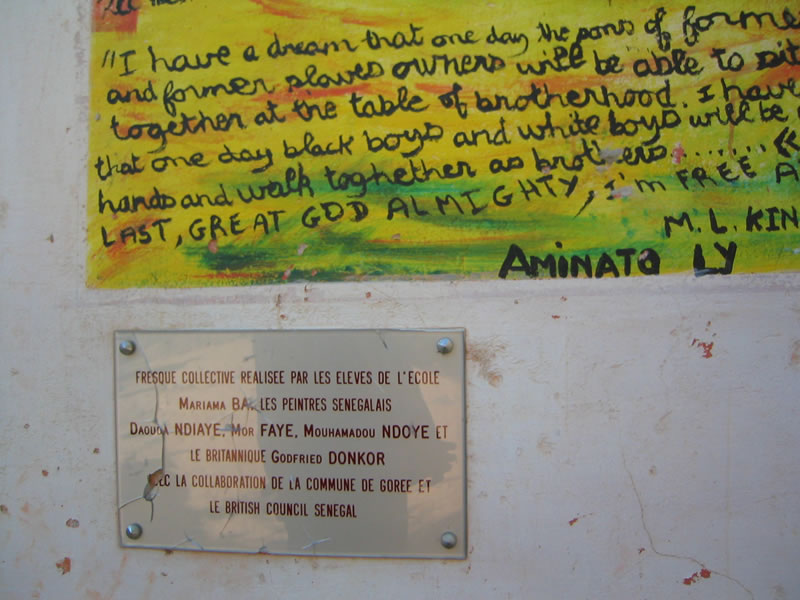 "I have a dream that one day the sons of former
and former slaves owners will be able to sit
together at the table of brotherhood. I have
that one day black boys and white boys will be
hands and walk toghether as brot ers........«
LAST, GREAT GOD ALMIGHTY, I'm FREE A
M. L. KIN
AMINATA LY
FRESQUE COLLECTIVE REALISEE PAR LES ELEVES DE L'ECOLE
MARIAMA BA, LES PEINTRES SENEGALAIS
DAOUDA NDIAYE, MOR FAYE, MOUHAMADOU NDOYE ET
LE BRITANNIQUE GODFRIED DONKOR
EC LA COLLABORATION DE LA COMMUNE DE GOREE ET
LE BRITISH COUNCIL SENEGAL